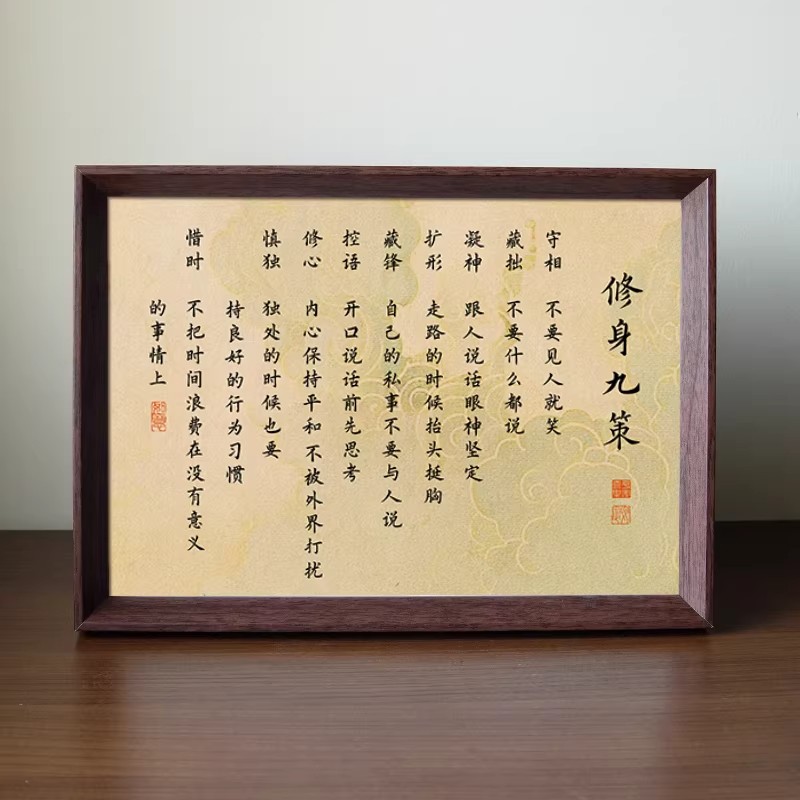 修身九策
守相 不要见人就笑
藏拙 不要什么都说
凝神 跟人说话眼神坚定
扩形 走路的时候抬头挺胸
藏锋 自己的私事不要与人说
控语 开口说话前先思考
修心 内心保持平和 不被外界打扰
慎独 独处的时候也要
持良好的行为习惯
惜时 不把时间浪费在没有意义
的事情上